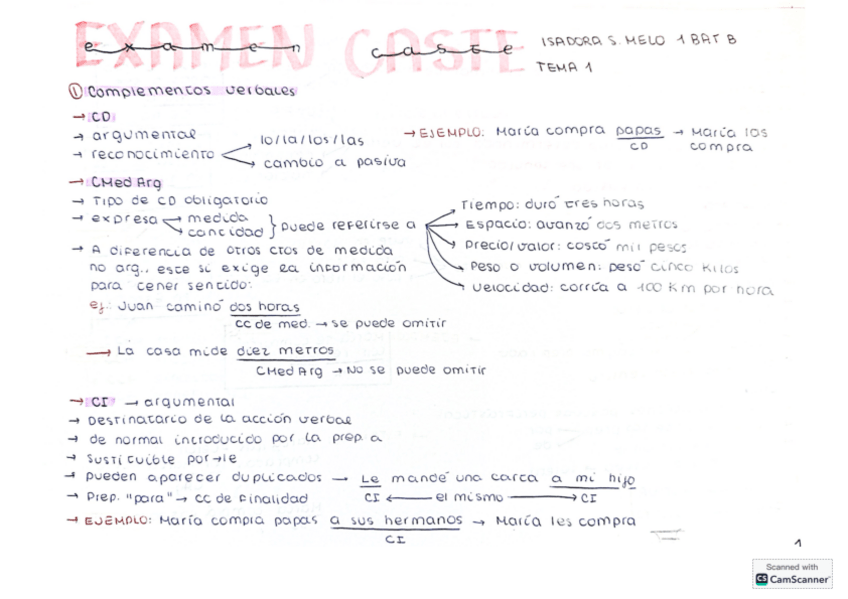 EXAMEN CASTE
examen caste
ISADORA S. MELO 1 BAT B
TEMA 1
① Complementos verbales
→ CD
→ argumental
→ reconocimiento
lo/la/los/las
cambio a pasiva
→ EJEMPLO: María compra papas → María los compra
CD
→ CMed Arg
→ Tipo de CD obligatorio
→ expresa
medida
cantidad
puede referirse a
Tiempo: duró tres horas
Espacio: avanzó dos metros
Precio/valor: costó mil pesos
Peso o volumen: pesó cinco kilos
Velocidad: corría a 100 km por hora
→ A diferencia de otros ctos de medida
no arg., este si exige la información
para tener sentido:
ej: Juan caminó dos horas
CC de med. → se puede omitir
→ La casa mide diez metros
CMed Arg → No se puede omitir
→ CI → argumental
→ Destinatario de la acción verbal
→ de normal introducido por la prep. a
→ Sustituible por → le
→ pueden aparecer duplicados → Le mandé una carta a mi hijo
CI ← el mismo → CI
→ Prep. "para" → CC de Finalidad
→ EJEMPLO: María compra papas a sus hermanos → María les compra
CI
1
Scanned with
CS CamScanner